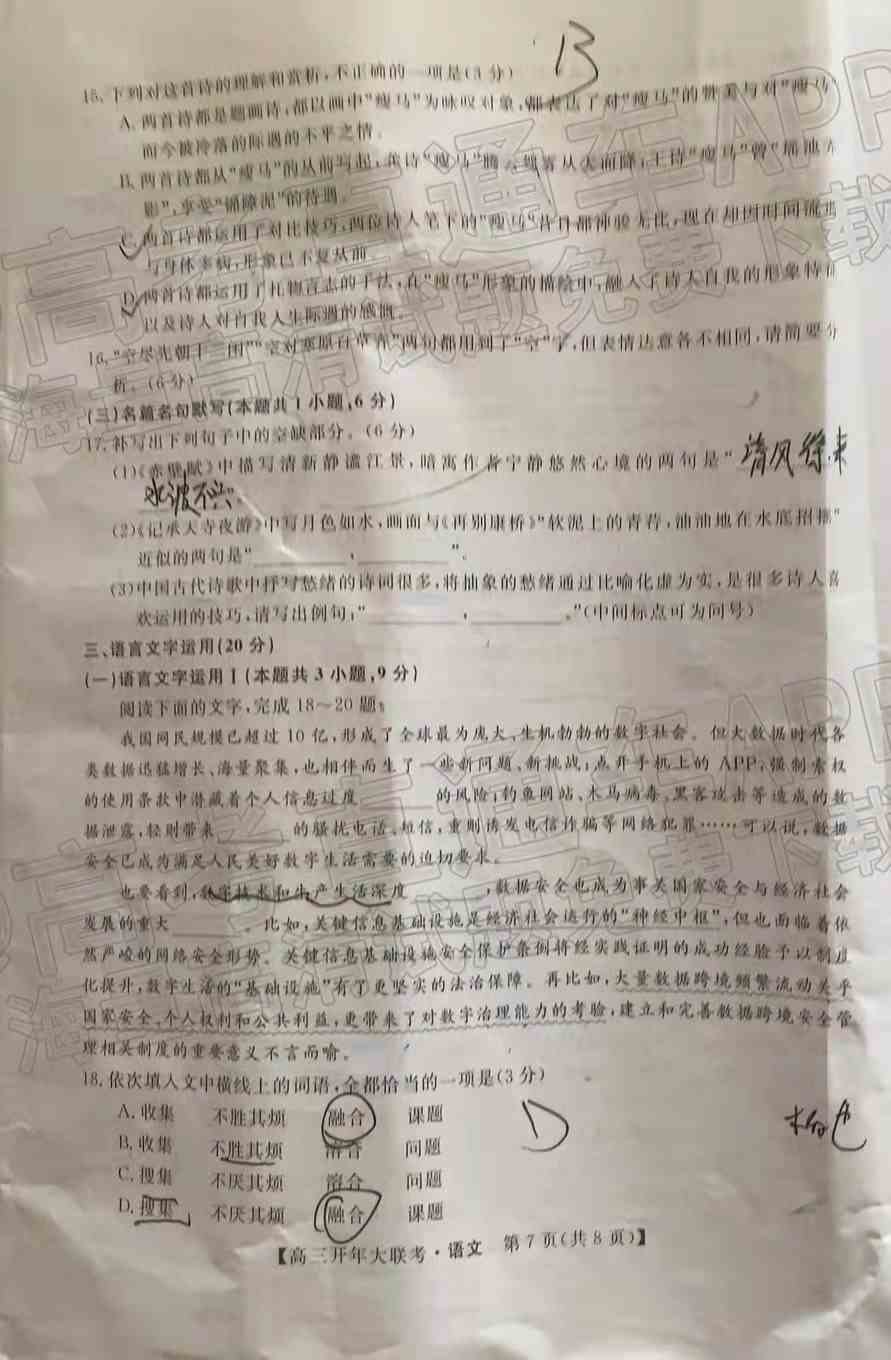 B
15.下列对这首诗的理解和赏析,不正确的一项是(3分)
A.两首诗都是题画诗,都以画中“瘦马”为咏叹对象,都表达了对“瘦马”的赞美与对“瘦马”
而今被冷落的际遇的不平之情。
B.两首诗都从“瘦马”的从前写起,龚诗“瘦马”腾云驾雾从天而降,王诗“瘦马”曾“摇池
影”,享受“锦障泥”的待遇。
C.两首诗都运用了对比技巧,两位诗人笔下的“瘦马”昔日都神骏无比,现在却因时间流逝
与身体多病,形象已不复从前。
D.两首诗都运用了托物言志的手法,在“瘦马”形象的描绘中,融入了诗人自我的形象特征
以及诗人对自我人生际遇的感慨。
16.“空尽先朝十二闲”“空对塞原百草青”两句都用到了“空”字,但表情达意各不相同,请简要分
析。(6分)
(三)名篇名句默写(本题共1小题,6分)
17.补写出下列句子中的空缺部分。(6分)
(1)《赤壁赋》中描写清新静谧江景,暗寓作者宁静悠然心境的两句是“清风徐来
水波不兴”
(2)《记承天寺夜游》中写月色如水,画面与《再别康桥》“软泥上的青荇,油油地在水底招摇”
近似的两句是“________,________”。
(3)中国古代诗歌中抒写愁绪的诗词很多,将抽象的愁绪通过比喻化虚为实,是很多诗人喜
欢运用的技巧,请写出例句:“________,________。”(中间标点可为问号)
三、语言文字运用(20分)
(一)语言文字运用Ⅰ(本题共3小题,9分)
阅读下面的文字,完成18～20题。
我国网民规模已超过10亿,形成了全球最为庞大、生机勃勃的数字社会。但大数据时代各
类数据迅猛增长、海量聚集,也相伴而生了一些新问题、新挑战:点开手机上的APP,强制索权
的使用条款中潜藏着个人信息过度________的风险;钓鱼网站、木马病毒、黑客攻击等造成的数
据泄露,轻则带来________的骚扰电话、短信,重则诱发电信诈骗等网络犯罪……可以说,数据
安全已成为满足人民美好数字生活需要的迫切要求。
也要看到,数字技术和生产生活深度________,数据安全也成为事关国家安全与经济社会
发展的重大________。比如,关键信息基础设施是经济社会运行的“神经中枢”,但也面临着依
然严峻的网络安全形势。关键信息基础设施安全保护条例将经实践证明的成功经验予以制度
化提升,数字生活的“基础设施”有了更坚实的法治保障。再比如,大量数据跨境频繁流动关乎
国家安全、个人权利和公共利益,更带来了对数字治理能力的考验,建立和完善数据跨境安全管
理相关制度的重要意义不言而喻。
18.依次填入文中横线上的词语,全都恰当的一项是(3分)
D
A.收集 不胜其烦 融合 课题
B.收集 不胜其烦 溶合 问题
C.搜集 不厌其烦 溶合 问题
D.搜集 不厌其烦 融合 课题
【高三开年大联考·语文 第7页(共8页)】